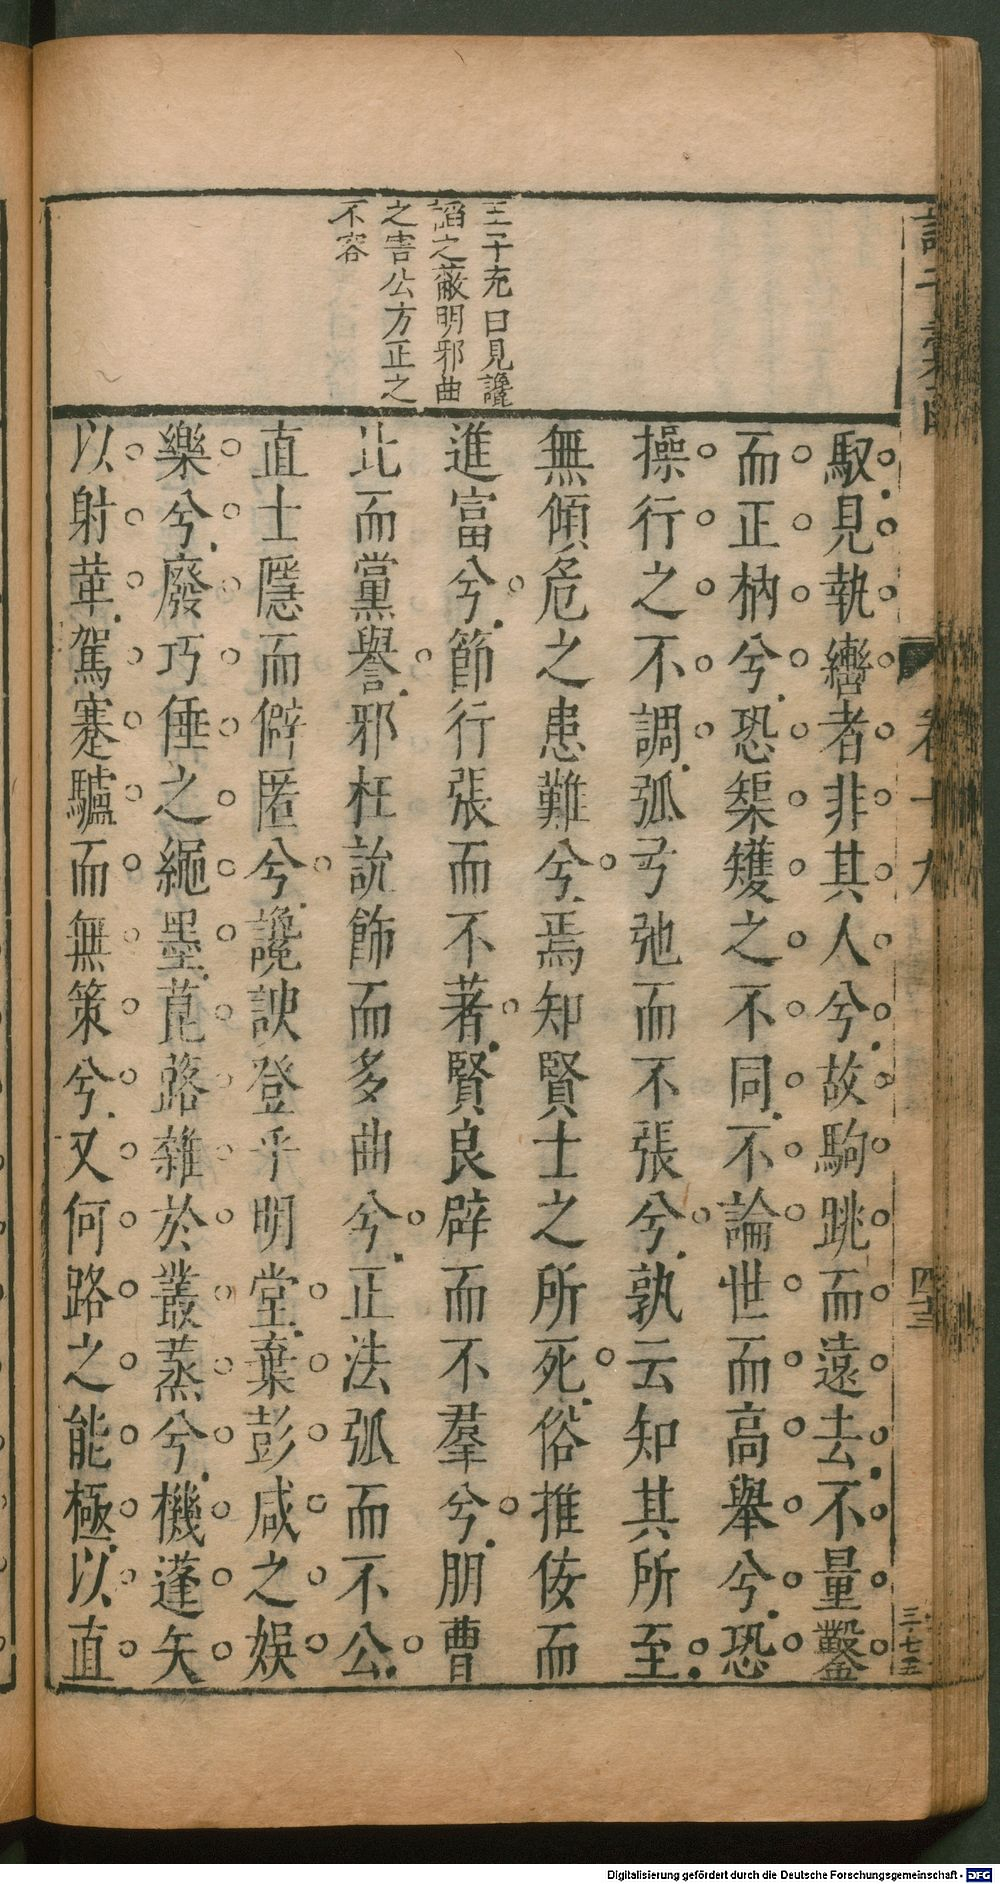 王子充曰見讒
謟之蔽明邪曲
之害公方正之
不容
馭見執轡者非其人兮故駒跳而遠去不量鑿
而正枘兮恐榘矱之不同不論世而高舉兮恐
操行之不調弧弓弛而不張兮孰云知其所至
無傾危之患難兮焉知賢士之所死俗推佞而
進富兮節行張而不著賢良辟而不羣兮朋曹
比而黨譽邪枉說飾而多曲兮正法弧而不公
直士隱而僻匿兮讒諛登乎明堂棄彭咸之娛
樂兮廢巧倕之繩墨菎蕗雜於叢蒸兮機蓬矢
以射革駕蹇驢而無策兮又何路之能極以直
卷十九
四三
三七五
Digitalisierung gefördert durch die Deutsche Forschungsgemeinschaft - DFG